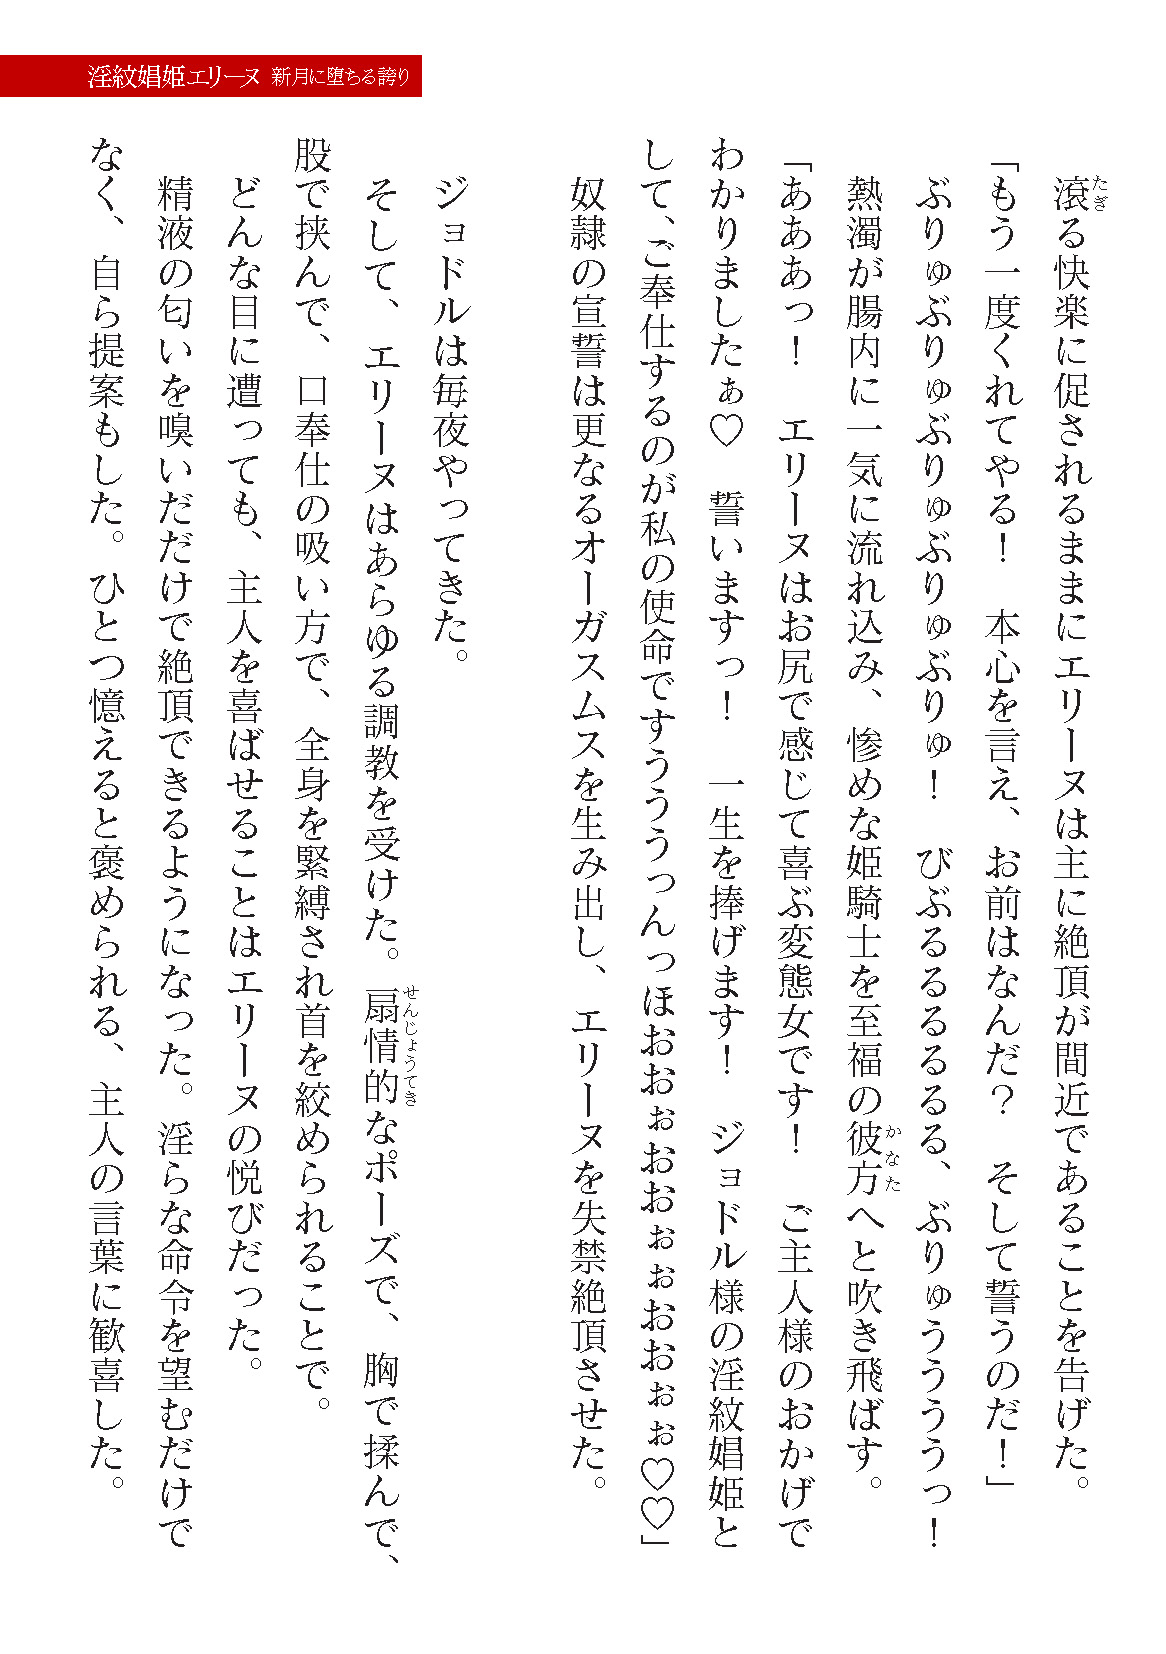 淫紋娼姫エリーヌ 新月に堕ちる誇り
滾る快楽に促されるままにエリーヌは主に絶頂が間近であることを告げた。
「もう一度くれてやる！　本心を言え、お前はなんだ？　そして誓うのだ！」
ぶりゅぶりゅぶりゅぶりゅぶりゅ！　びぶるるるるる、ぶりゅうううっ！
熱濁が腸内に一気に流れ込み、惨めな姫騎士を至福の彼方へと吹き飛ばす。
「あああっ！　エリーヌはお尻で感じて喜ぶ変態女です！　ご主人様のおかげで
わかりましたぁ♡　誓いますっ！　一生を捧げます！　ジョドル様の淫紋娼姫と
して、ご奉仕するのが私の使命ですうううっんっほおおぉおおぉぉおおぉぉ♡♡」
奴隷の宣誓は更なるオーガスムスを生み出し、エリーヌを失禁絶頂させた。
ジョドルは毎夜やってきた。
そして、エリーヌはあらゆる調教を受けた。扇情的なポーズで、胸で揉んで、
股で挟んで、口奉仕の吸い方で、全身を緊縛され首を絞められることで。
どんな目に遭っても、主人を喜ばせることはエリーヌの悦びだった。
精液の匂いを嗅いだだけで絶頂できるようになった。淫らな命令を望むだけで
なく、自ら提案もした。ひとつ憶えると褒められる、主人の言葉に歓喜した。